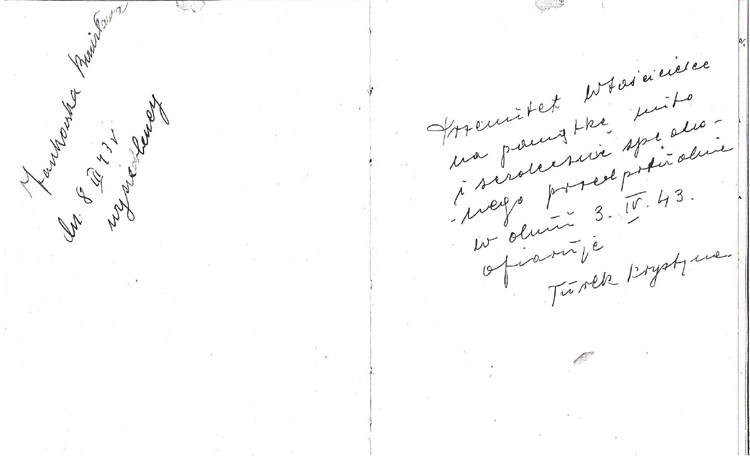 Jankowska
dn. 8 III 43 r.
wysiedleńcy
Przemiłej Właścicielce
na pamiątkę miło
i serdecznie spędzo-
-nego przedpołudnia
w dniu 3. IV. 43.
ofiaruje
Turek Krystyna.